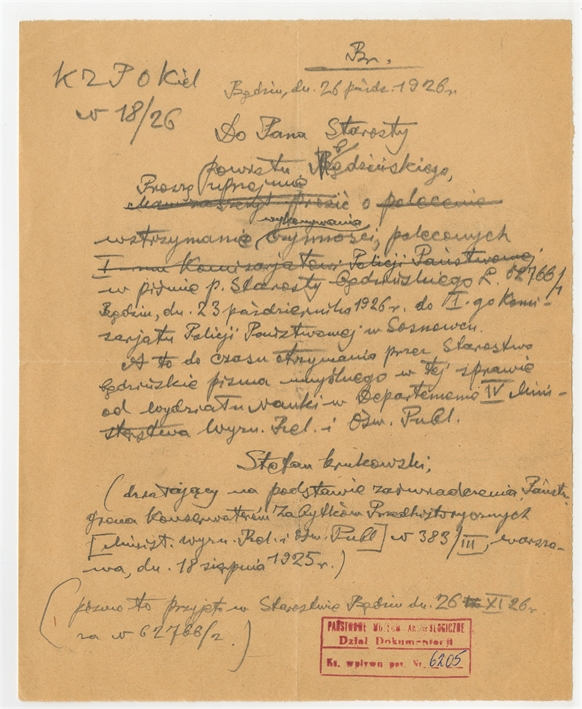 Br.
KZPOKiel
w 18/26
Będzin, dn. 26 paźdz. 1926 r.
Do Pana Starosty
powiatu Będzińskiego,
Proszę uprzejmie
prosić o polecenie
wykonywania
wstrzymanie czynności, poleconych
I-mu Komisarjatowi Policji Państwowej
w piśmie p. Starosty Będzińskiego L. 62766/1
Będzin, dn. 23 października 1926 r. do I-go Komi-
sarjatu Policji Państwowej w Sosnowcu.
A to do czasu otrzymania przez Starostwo
Będzińskie pisma umyślnego w tej sprawie
od Wydziału Nauki w Departamencie IV Mini-
sterstwa Wyzn. Rel. i Ośw. Publ.
Stefan Krukowski,
(działający na podstawie zaświadczenia Państw.
grona Konserwatorów Zabytków Przedhistorycznych
[Minist. Wyzn. Rel. i Ośw. Publ] w 383/III, Warsza-
wa, dn. 18 sierpnia 1925 r.)
(pismo to przyjęto w Starostwie Będzin dn. 26 XI 26 r.
za w 62766/2.)
PAŃSTWOWE MUZEUM ARCHEOLOGICZNE
Dział Dokumentacji
Ks. wpływu poz. Nr. 6205